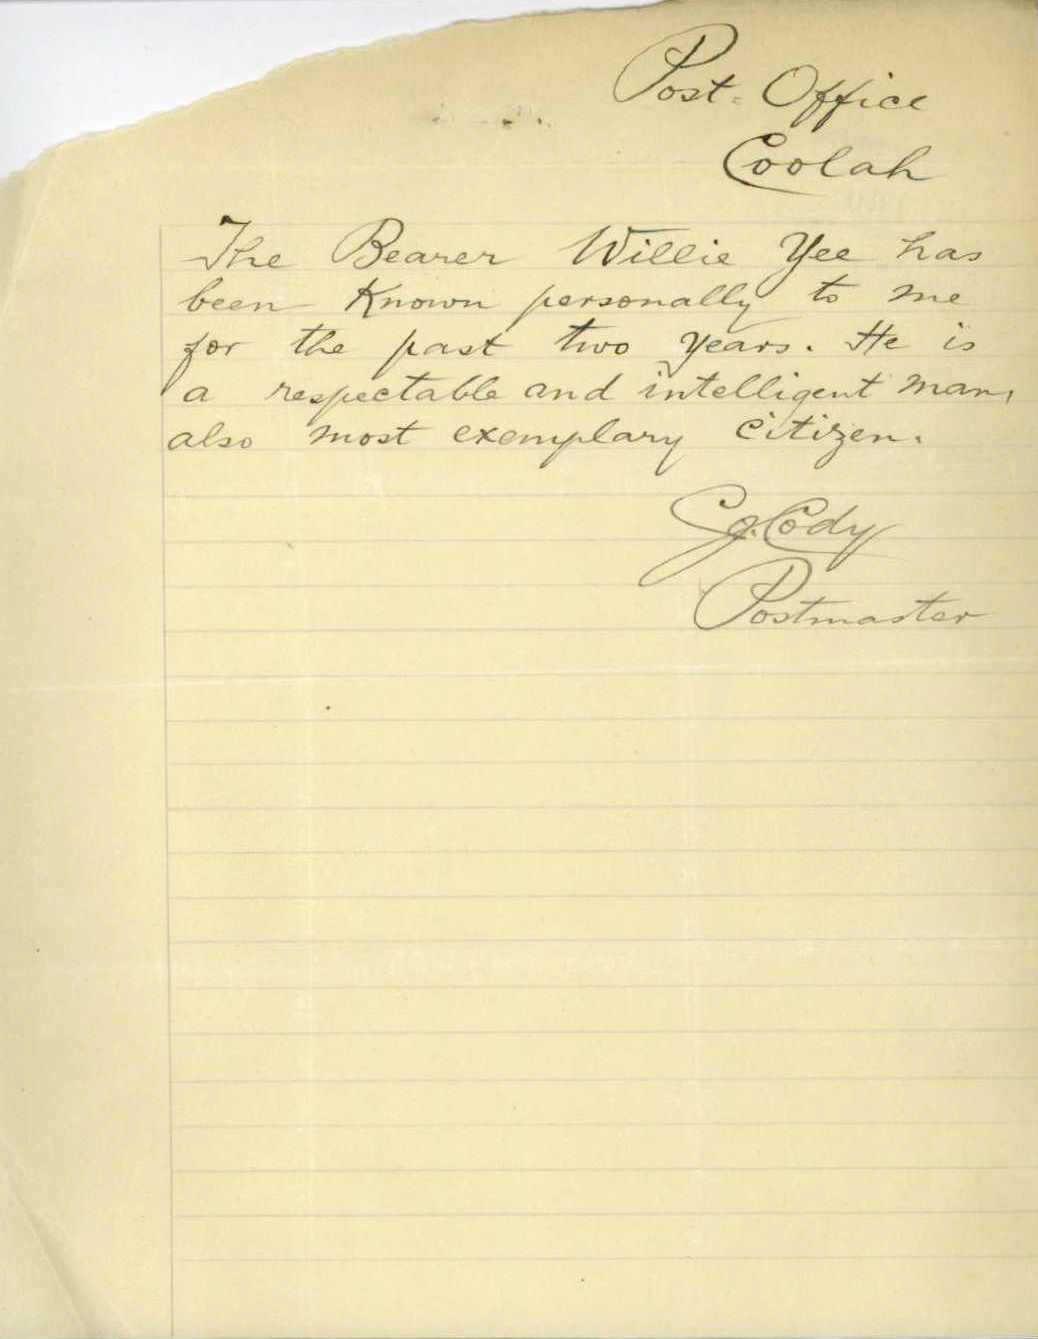 Post-Office
Coolah
The Bearer Willie Yee has
been Known personally to me
for the past two years. He is
a respectable and intelligent man,
also most exemplary citizen.
Cody
Postmaster